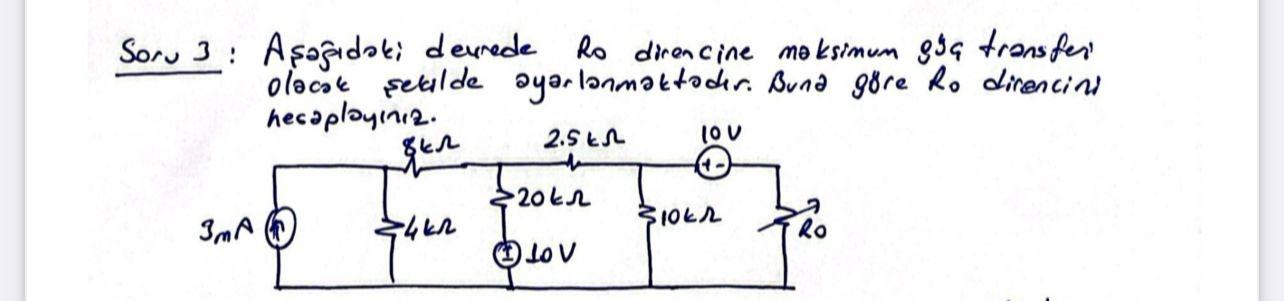 Soru 3 : Aşağıdaki devrede Ro direncine maksimum güç transferi
olacak şekilde ayarlanmaktadır. Buna göre Ro direncini
hesaplayınız.
8kΩ 2.5kΩ 10V
+ -
20kΩ
3mA 4kΩ 10kΩ Ro
10V